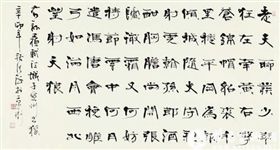 老夫聊發少年
狂左牽黃右擎
蒼錦帽貂裘千
騎卷平岡為報
傾城隨太守親
射虎看孫郎酒
酣胸膽尚開張
鬢微霜又何妨
持節雲中何日
遣馮唐會挽雕
弓如滿月西北
望射天狼
蘇軾江城子密州出獵
辛卯年